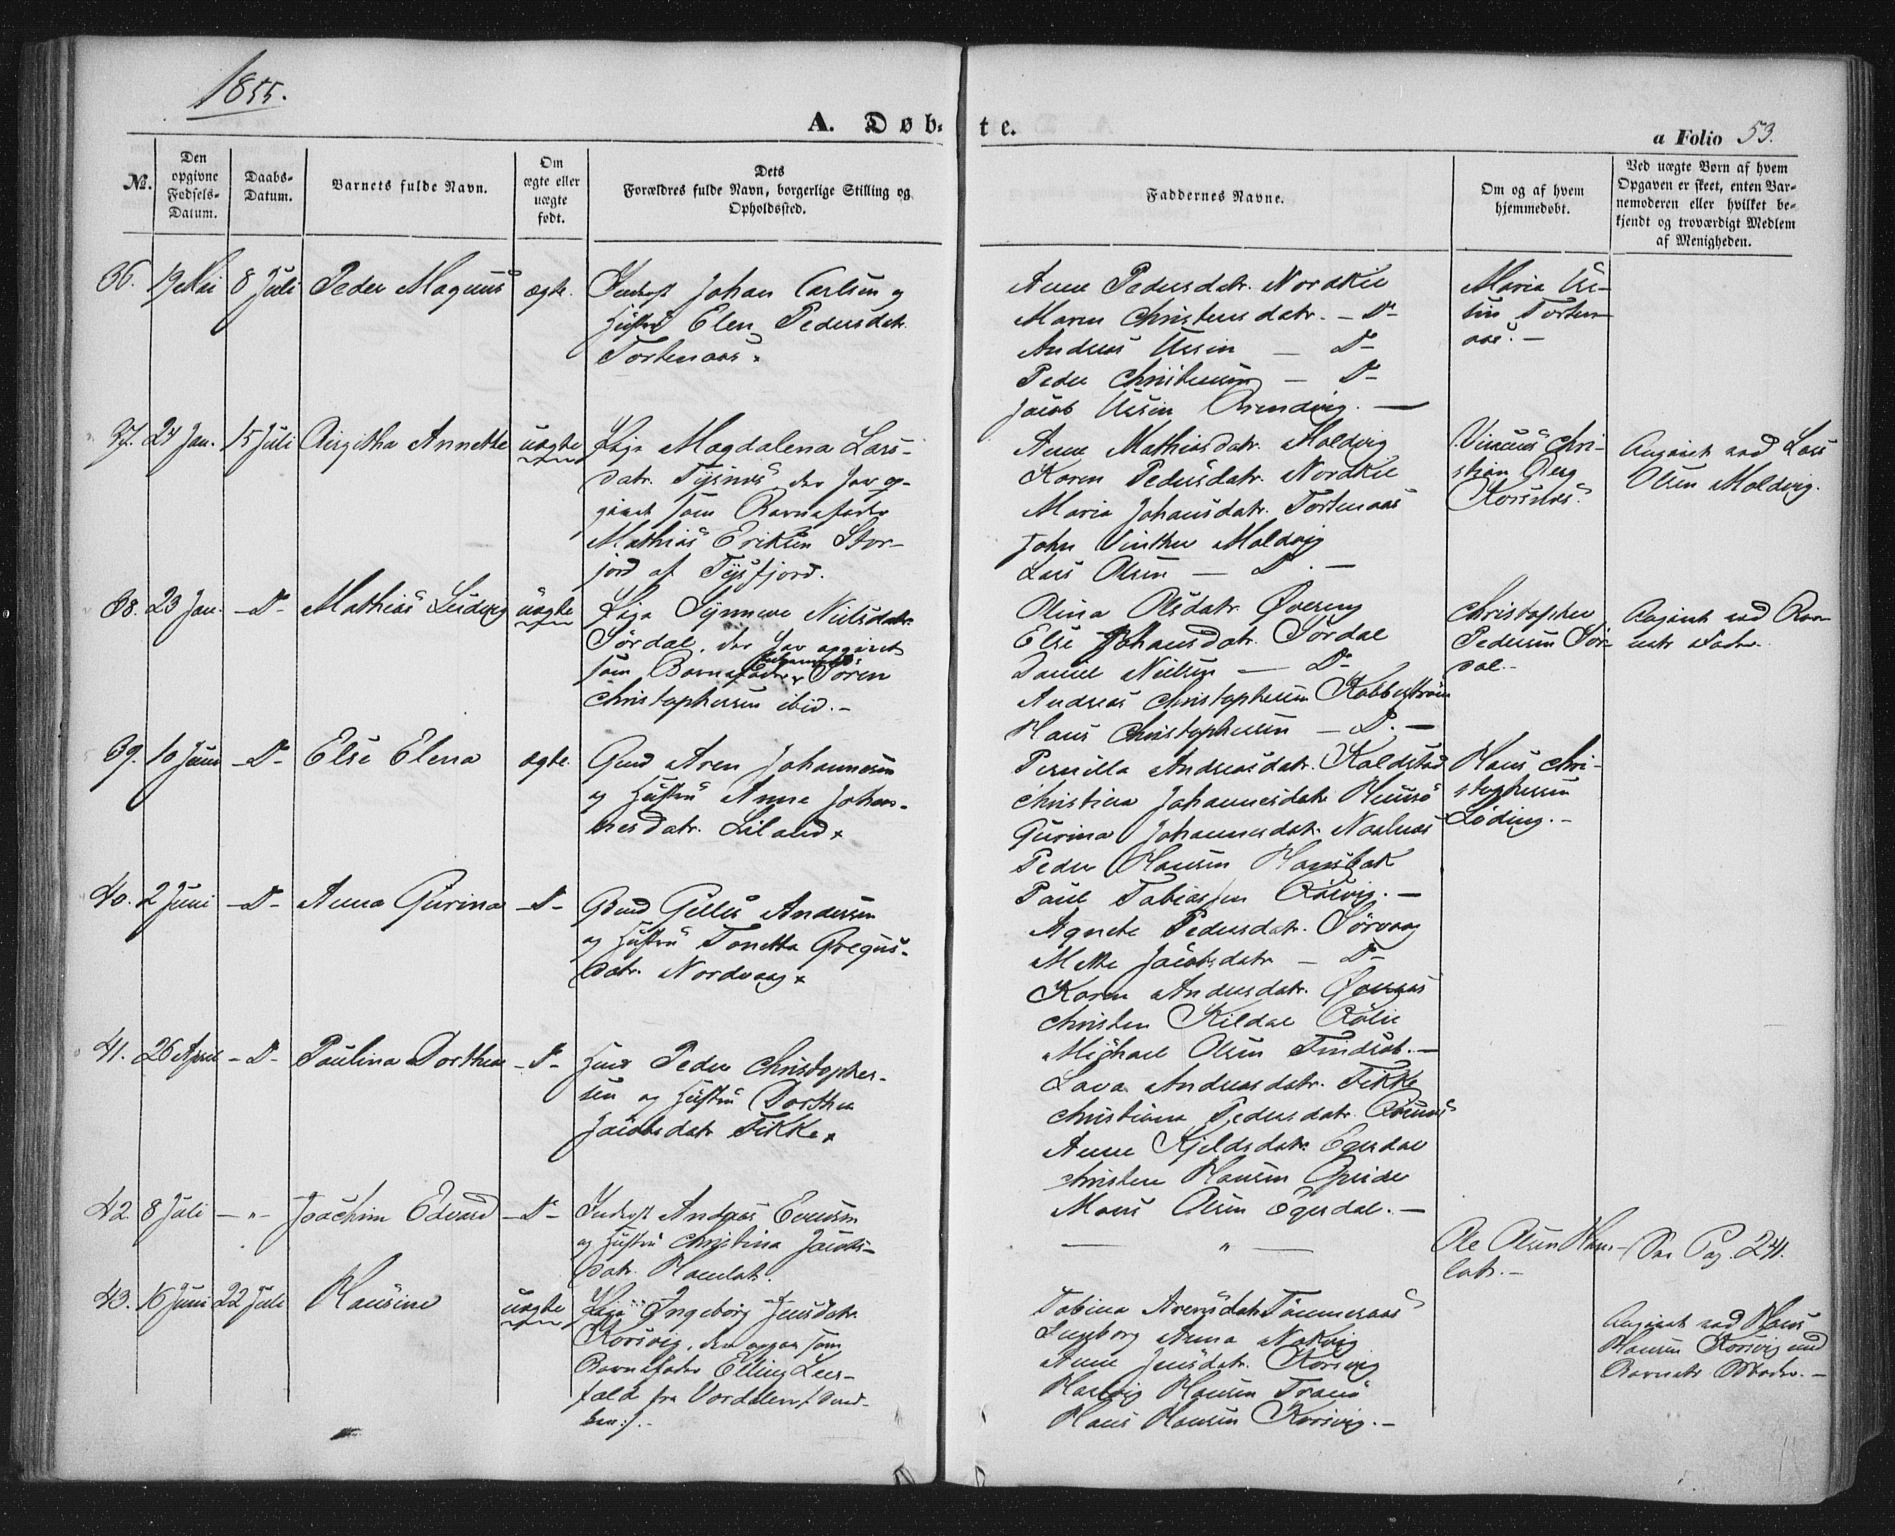 1855.
A. Døb-
te.
a Folio 53.
No.
Den
opgivne
Fødsels-
Datum.
Daabs-
Datum.
Barnets fulde Navn.
Om
ægte eller
uægte
født.
Dets
Forældres fulde Navn, borgerlige Stilling og
Opholdssted.
Faddernes Navne.
Om og af hvem
hjemmedøbt.
Ved uægte Børn af hvem
Opgaven er skeet, enten Bar-
nemoderen eller hvilket be-
kjendt og troværdigt Medlem
af Menigheden.
36. 19 Mai 8 Juli Peder Magnus ægte. Johan Carlsen og
Hustru Elen Pedersdatr.
Tortenaas
Anne Pedersdatr. Nordkil
Maren Christensdatr. - Do
Andreas Ursin - Do
Peder Christensen - Do
Jacob Ursin
Maria Ur-
sin Torten-
aas. -
37. 24 Jan. 15 Juli Birgitha Annette uægte Pige Magdalena Lars-
datr. Tysnes, der har op-
givet som Barnefader
Mathias Eriksen Stor-
jord af Tysfjord.
Anne Mathisdatr. Moldvig
Karen Pedersdatr. Nordkil
Maria Johansdatr. Tortenaas
John Vinther Moldvig
Lars Olsen - Do. -
Chri-
stian Berg
Korsnes.
Angivet ved Lars
Olsen Moldvig.
38. 23 Jan. - Do - Mathias Ludvig uægte Pige Synneve Nielsdatr.
Sørdal, der har opgivet
som Barnefader Søren
Christophersen ibid. -
Olina Olsdatr.
Else Johansdatr. Sørdal
Daniel Nielsen - Do
Andreas Christophersen
Hans Christophersen - Do. -
Christopher
Pedersen Sør-
dal. -
Angivet ved Bar-
nets Fader.
39. 10 Juni - Do - Else Elena ægte. Gmd Aren Johannesen
og Hustru Anne Johan-
nesdatr. Liland
Pernilla Andreasdatr. Kaldstad
Christina Johannesdatr.
Gurina Johannesdatr.
Peder Hansen Hansbak
Paul Tobiassen
Hans Chri-
stophersen
Løding. -
40. 2 Juni - Do - Anna Gurina - Do - Gmd Andersen
og Hustru Tonetta Gregus-
datr. Nordvaag
Agnete Pedersdatr. Sørvaag
Mette Jacobsdatr - Do
Karen Andersdatr.
Christen Kildal
Michael Olsen
41. 26 April - Do - Paulina Dorthea - Do - Peder Christopher-
sen og Hustru Dorthea
Jacobsdatr Fikke
Lava Andreasdatr. Fikke
Christiana Pedersdatr.
Anne Kjeldsdatr. Egerdal
Christen Hansen
Mons Olsen Egerdal. -
42. 8 Juli - " - Joachim Edvard - Do - Andreas Evensen
og Hustru Christina Jacobs-
datr.
- " -
Ole Olsen
See Pag. 241.
43. 16 Juni 22 Juli Hansine uægte Pige Ingeborg Jensdatr.
Korsvig, der opgav som
Barnefader Elling Lees-
fald fra Værdalen
Tobina Arensdatr
Ingeborg Anna
Anne Jensdatr. Korsvig
Hartvig Hansen Tranø
Hans Hansen Korsvig. -
Angivet ved Hans
Hansen Korsvig med
Barnets Moder. -